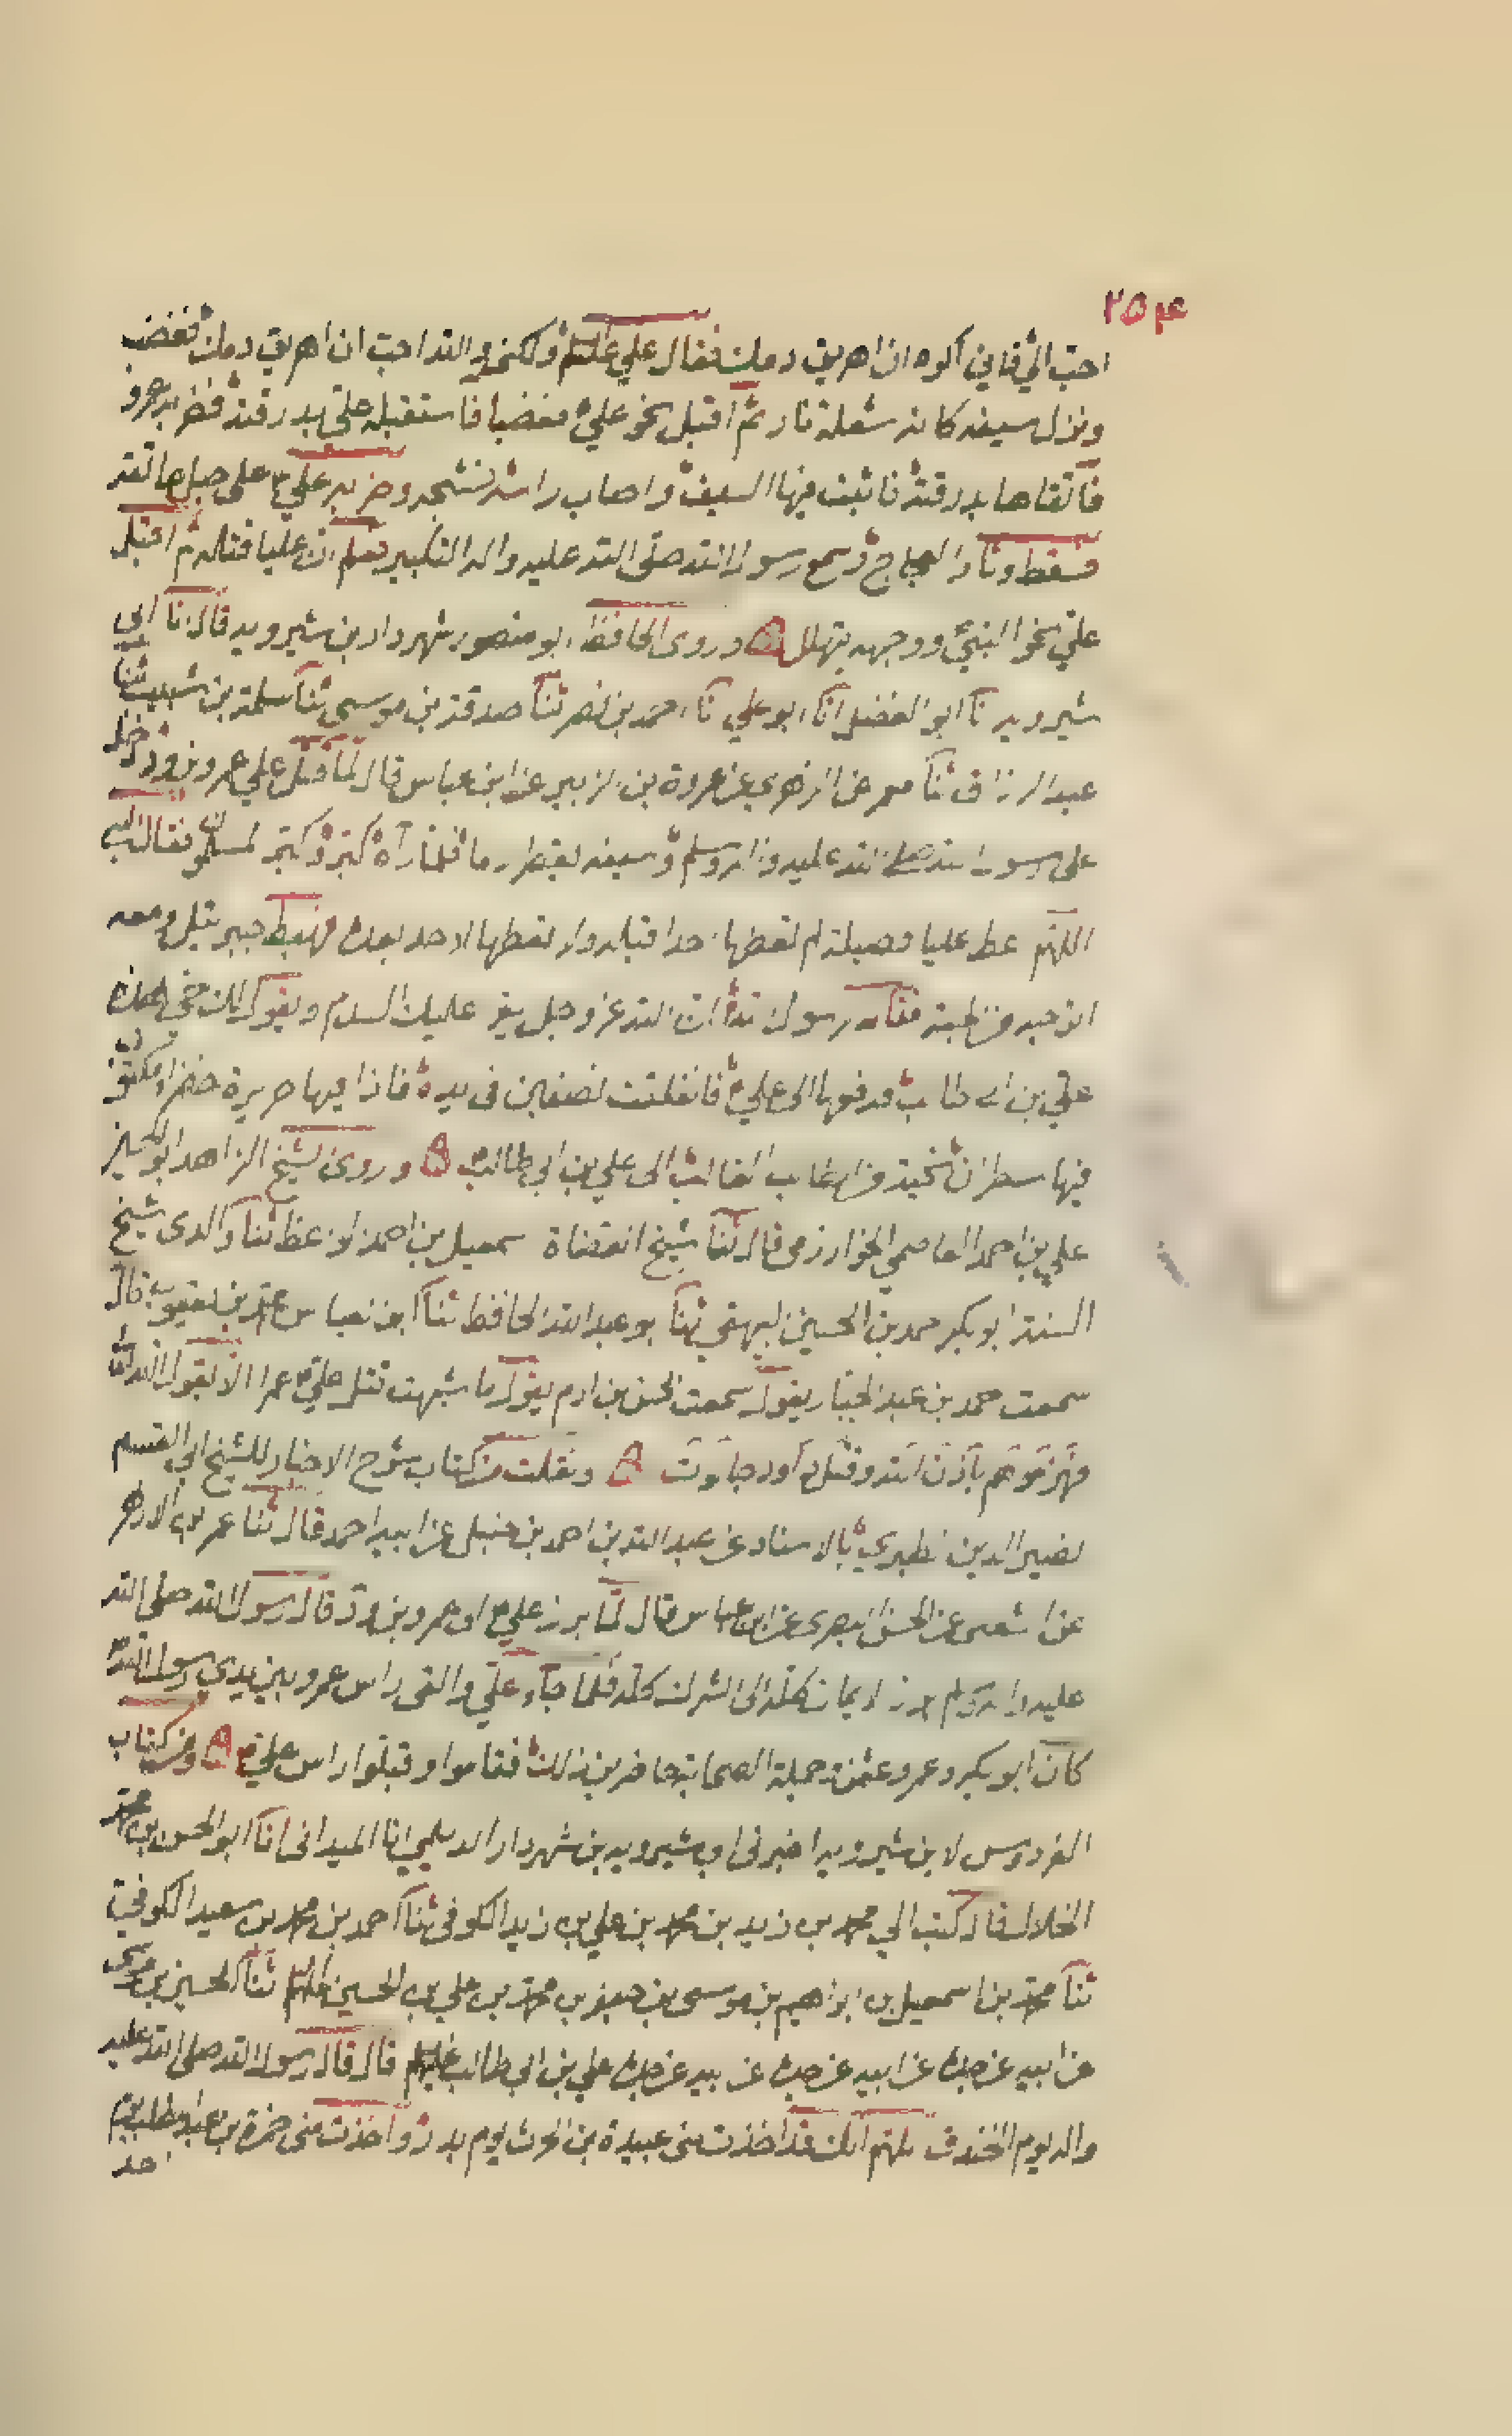 ٢٥ عم
احبّ اليّ فاني اكره ان اهريق دمك فقال علي عليلم ولكنني والله احبّ ان اهريق دمك فغضب
ونزل وسل سيفه كانه شعلة نار ثم اقبل نحو علي مغضبا فاستقبله علي بدرقته فضربه عمرو
فاتقاها بدرقته فاثبت فيها السيف واصاب راسه فشجه وضربه علي على حبل عاتقه
فسقط وثار العجاج وسمع رسول الله صلى الله عليه واله التكبير فعلم ان عليا قتله ثم اقبل
علي نحو النبي ووجهه يتهلل ه وروى الحافظ ابو منصور شهردار بن شيرويه قال انا ابي
شيرويه نا ابو الفضل انا ابو علي نا احمد بن نصر ثنا صدقة بن موسى ثنا سلمة بن شبيب ثنا
عبد الرزاق ثنا معمر عن الزهري عن عروة بن الزبير عن ابن عباس قال لما قتل علي عمرو بن ود دخل
على رسول الله صلى الله عليه واله وسلم وسيفه يقطر دما فلما رآه كبر وكبر المسلمون فقال النبي
اللهم اعط عليا فضيلة لم تعطها احدا قبله ولا تعطها لاحد بعده فهبط جبرئيل ومعه
اترجة من الجنة فقال رسول الله ان الله عز وجل يقرء عليك السلام ويقول لك حي بهذه
علي بن ابي طالب فدفعها الى علي فانفلقت نصفين في يده فاذا فيها حريرة خضراء مكتوب
فيها سطران تحية من الغالب الطالب الى علي بن ابي طالب ه وروى الشيخ الزاهد ابو الحسن
علي بن احمد العاصمي الخوارزمي قال ثنا شيخ القضاة اسمعيل بن احمد الواعظ ثنا والدي شيخ
السنة ابو بكر احمد بن الحسين البيهقي ثنا ابو عبد الله الحافظ ثنا ابو العباس محمد بن يعقوب قال
سمعت محمد بن عبد الجبار يقول سمعت الحسن بن ادم يقول ما شبهت قتل علي عمرا الا بقول الله
فهزموهم باذن الله وقتل داود جالوت ه ونقلت من كتاب شرح الاخبار للشيخ ابي القسم
نصير الدين الطبري بالاسناد عن عبد الله بن احمد بن حنبل عن ابيه احمد قال ثنا عمر بن الازهر
عن اشعث عن الحسن البصري عن ابن عباس قال لما برز علي الى عمرو بن ود قال رسول الله صلى الله
عليه واله وسلم برز الايمان كله الى الشرك كله فلما جاء علي والقى راس عمرو بين يدي رسول الله
كان ابو بكر وعمر وعثمن من جملة الصحابة حاضرين ذلك فقاموا وقبلوا راس علي ه ومن كتاب
الفردوس لابن شيرويه اخبرني ابي شيرويه بن شهردار الديلمي انا الميداني انا ابو الحسن بن محمد
الخلال قال كتب الي محمد بن زيد بن محمد بن علي بن زيد الكوفي ثنا احمد بن محمد بن سعيد الكوفي
ثنا محمد بن اسمعيل بن ابراهيم بن موسى بن جعفر بن محمد بن علي بن الحسين ثنا الحسين بن موسى
عن ابيه عن جده عن ابيه عن جده عن ابيه عن جده علي بن ابي طالب قال قال رسول الله صلى الله عليه
واله يوم الخندق اللهم انك قد اخذت مني عبيدة بن الحرث يوم بدر واخذت مني حمزة بن عبد المطلب يوم
احد